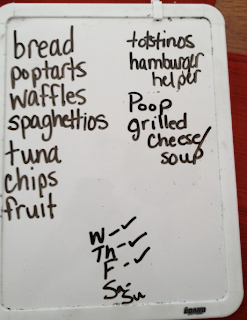 bread
poptarts
waffles
spaghettios
tuna
chips
fruit
totstinos
hamburger
helper
Poop
grilled
cheese/
soup
W - ✓
Th - ✓
F - ✓
Sa -
Su